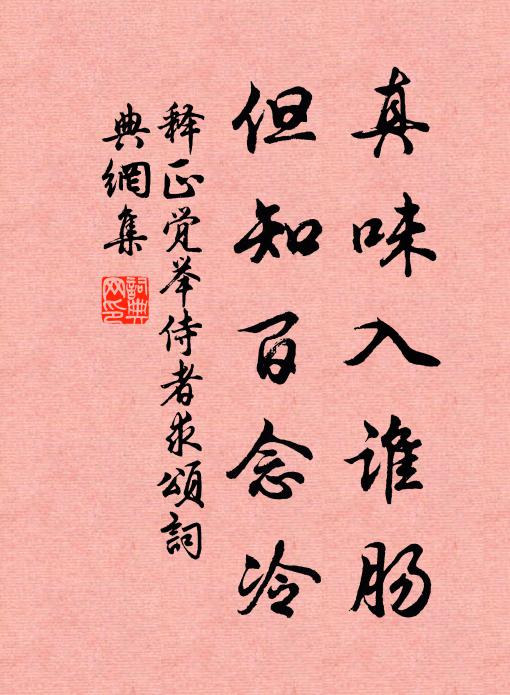 真味入谁肠
但知百念冷
释正觉举侍者求颂詞
典網集
詞典
网印